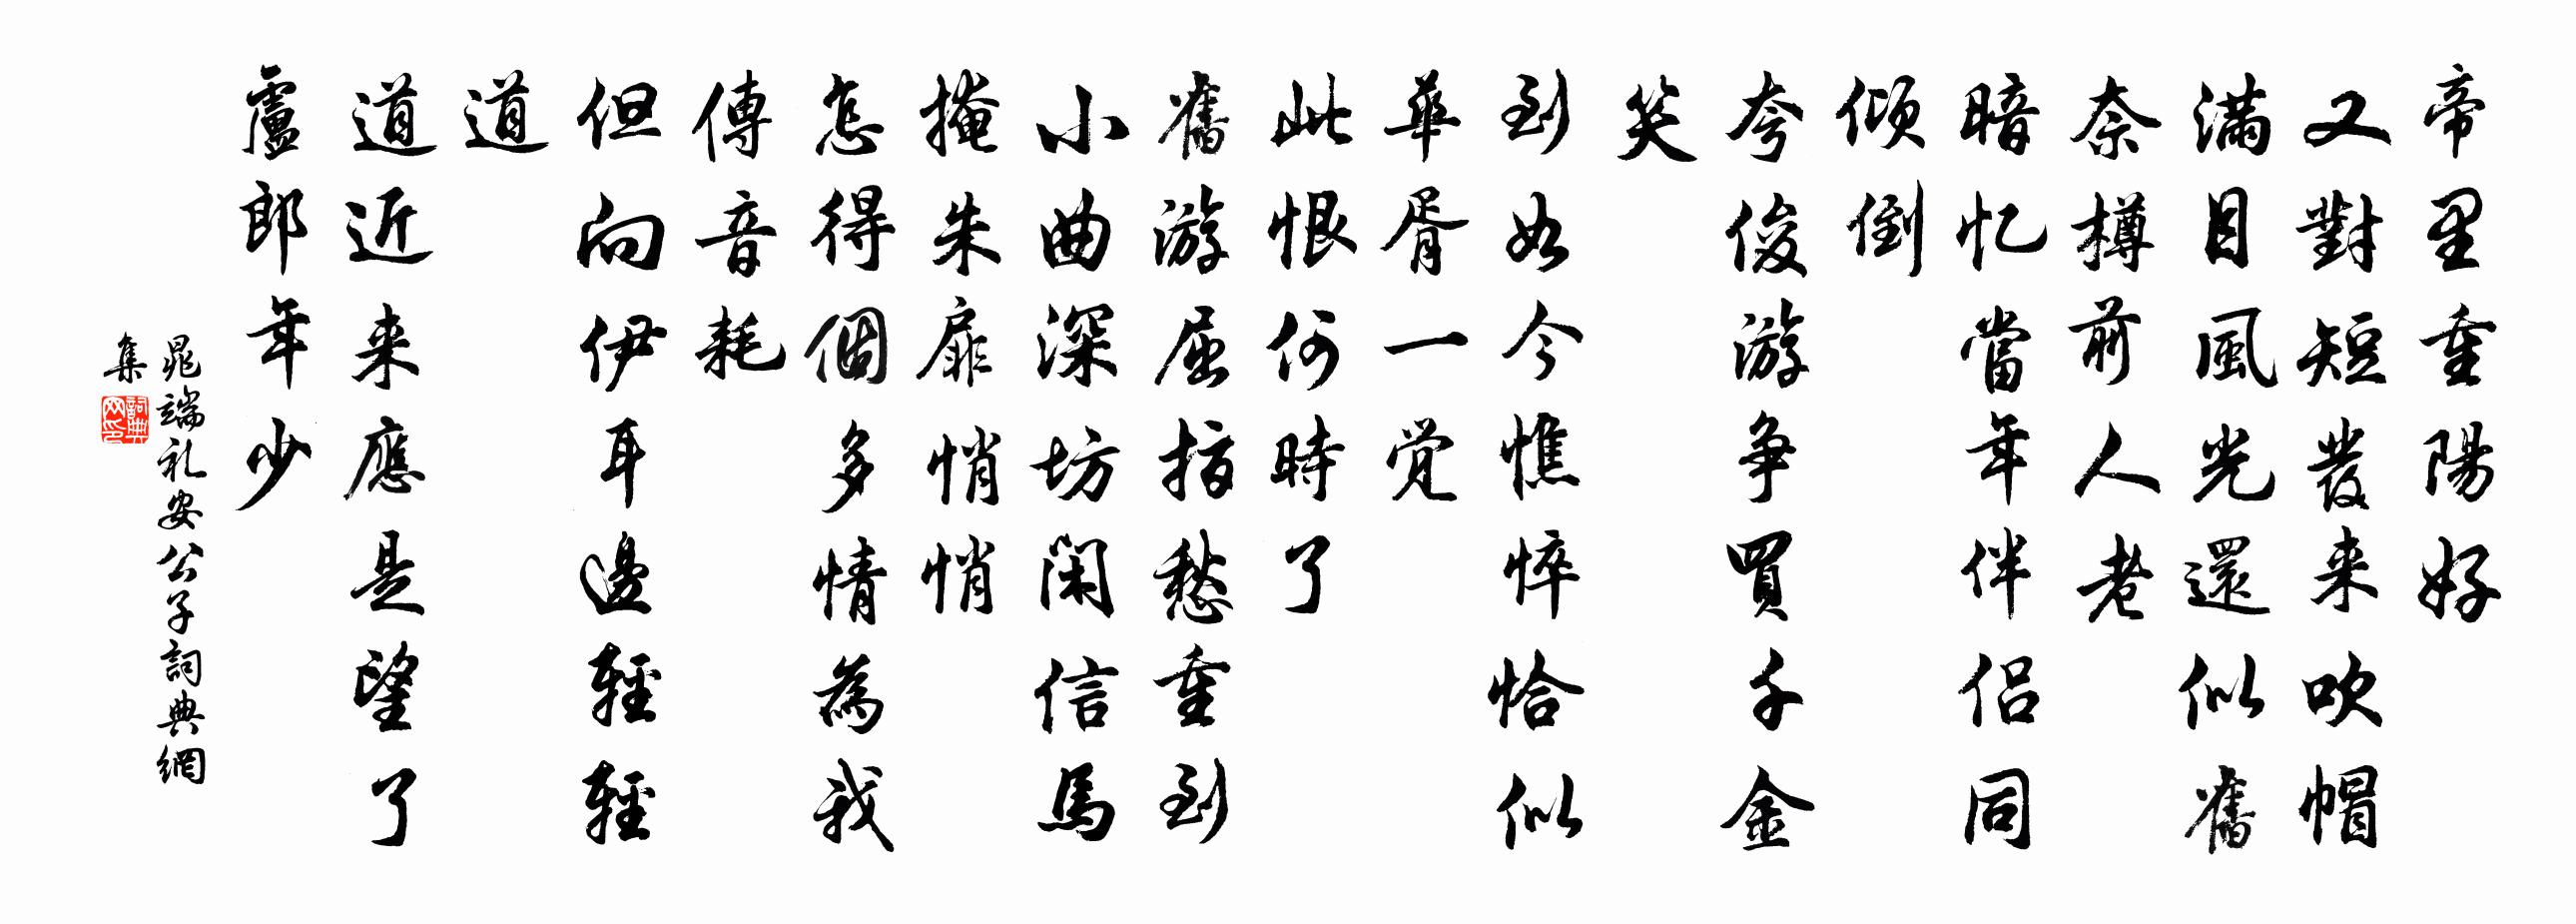 帝里重陽好
又對短發来吹帽
滿目風光還似舊
奈樽前人老
暗忆當年伴侣同
傾倒
夸俊游争買千金
笑
到如今憔悴恰似
華胥一觉
此恨何時了
舊游屈指愁重到
小曲深坊閑信馬
掩朱扉悄悄
怎得個多情為我
傳音耗
但向伊耳邊輕輕
道
道近来應是望了
盧郎年少
晁端礼安公子詞典網
集
詞典网印